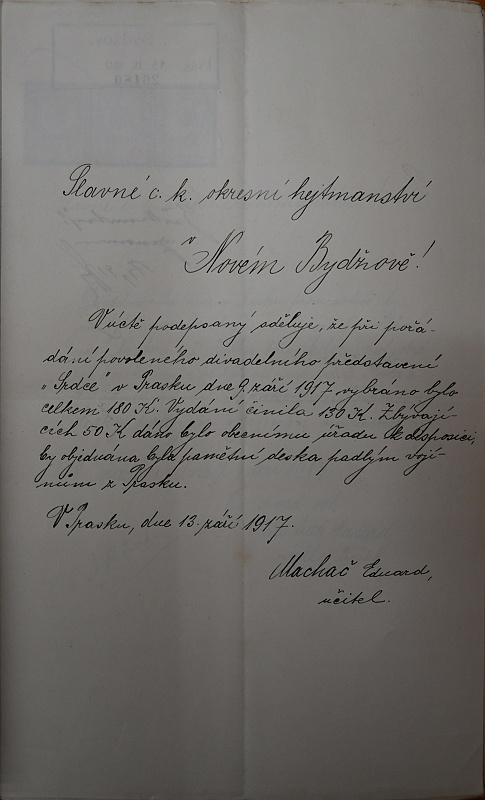 Slavné c. k. okresní hejtmanství
v
Novém Bydžově!
V úctě podepsaný sděluje, že při pořá-
dání povoleného divadelního představení
„Srdce" v Prasku dne 9. září 1917 vybráno bylo
celkem 180 K. Vydání činila 130 K. Zbývají-
cích 50 K dáno bylo obecnímu úřadu k disposici,
by objednána byla pamětní deska padlým vojí-
nům z Prasku.
V Prasku, dne 13. září 1917.
Machač Eduard,
učitel.